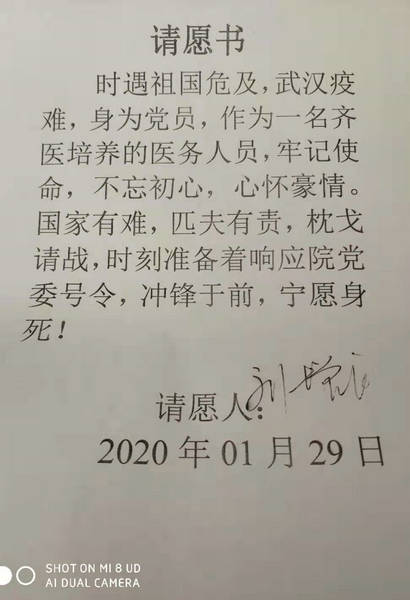 请愿书
时遇祖国危及，武汉疫
难，身为党员，作为一名齐
医培养的医务人员，牢记使
命，不忘初心，心怀豪情。
国家有难，匹夫有责，枕戈
请战，时刻准备着响应院党
委号令，冲锋于前，宁愿身
死！
请愿人：
2020 年 01 月 29 日
SHOT ON MI 8 UD
AI DUAL CAMERA